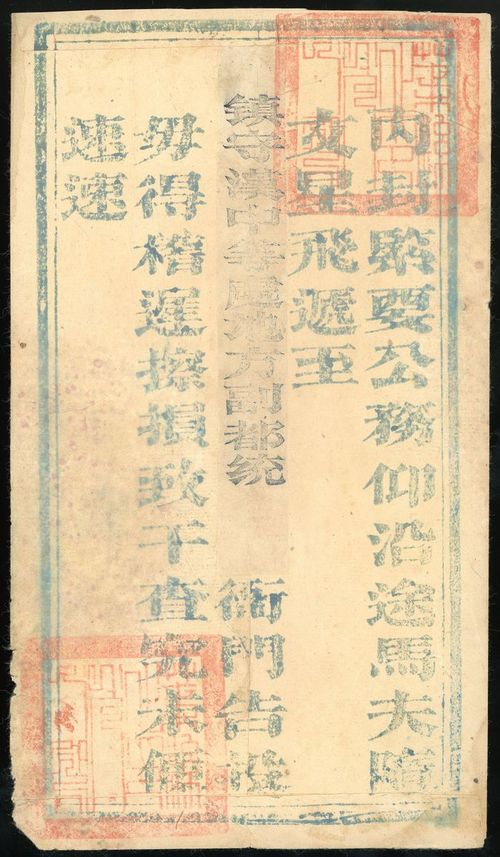 内封緊要公務仰沿途馬夫隨
文星飛遞至
鎮守漢中等處地方副都统
衙門告投
毋得稽遲擦損致干查究未便
速速